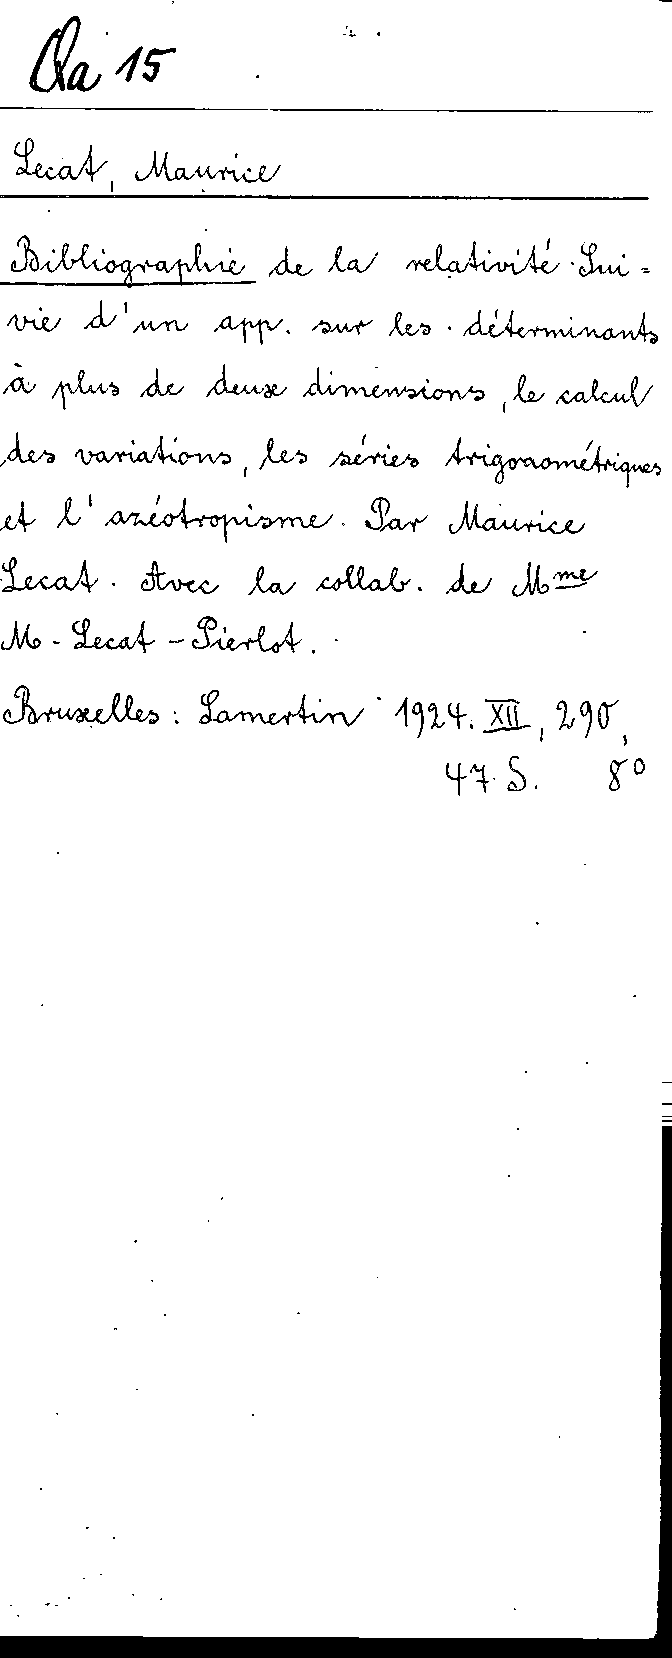 Qa 15
Lecat, Maurice
Bibliographie de la relativité. Sui=
vie d'un app. sur les déterminants
à plus de deux dimensions, le calcul
des variations, les séries trigonométriques
et l'azéotropisme. Par Maurice
Lecat. Avec la collab. de Mme
M. Lecat-Pierlot.
Bruxelles: Lamertin 1924. XII, 290,
47 S. 8°